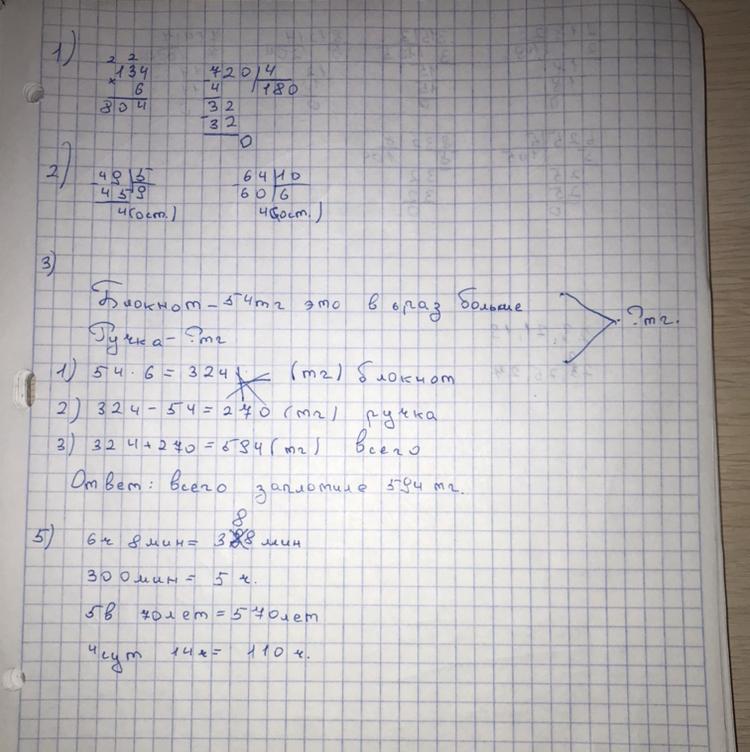 1)
2 2
134
× 6
804
720 4
4 180
32
32
0
2)
49 5
45 9
4(ост.)
64 10
60 6
4(ост.)
3)
Блокнот – 54тг это в 6раз больше
Ручка – ?тг
?тг.
1) 54 · 6 = 324 (тг) блокнот
2) 324 – 54 = 270 (тг) ручка
3) 324 + 270 = 594 (тг) всего
Ответ: всего заплотиле 594 тг.
8
5) 6ч 8мин = 3 8мин
300мин = 5 ч.
5в 70лет = 570лет
4сут 14ч = 110 ч.